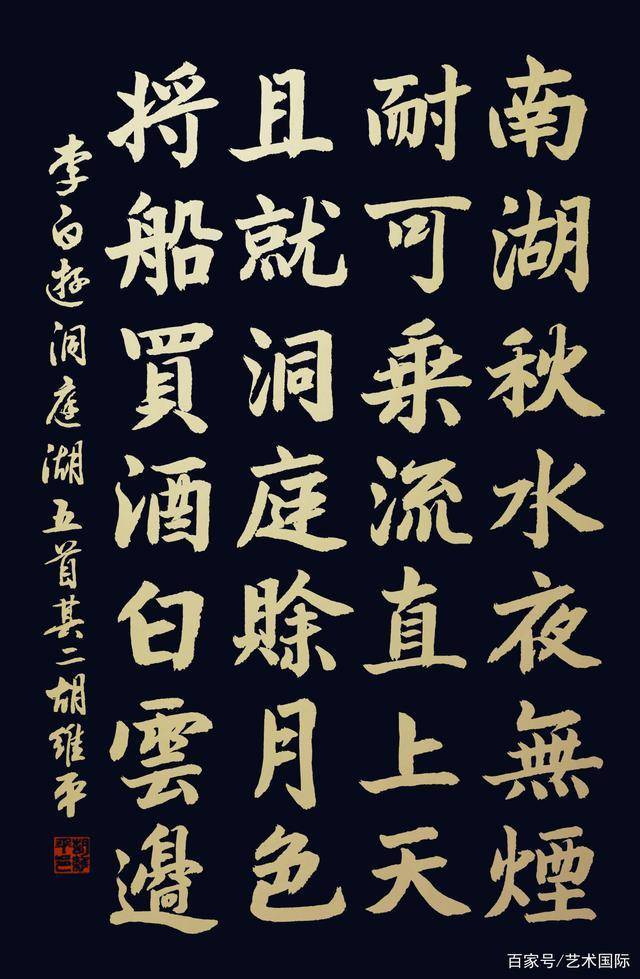 南湖秋水夜無煙
耐可乗流直上天
且就洞庭賒月色
将船買酒白雲邊
李白遊洞庭湖五首其二胡維平
百家号/艺术国际